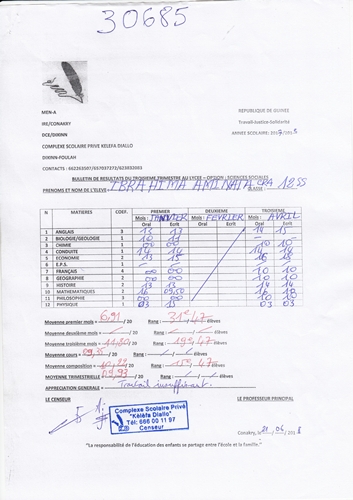 30685
MEN-A
IRE/CONAKRY
DCE/DIXINN
COMPLEXE SCOLAIRE PRIVE KELEFA DIALLO
DIXINN-FOULAH
REPUBLIQUE DE GUINEE
Travail-Justice-Solidarité
ANNEE SCOLAIRE: 2017/2018
BULLETIN DE RESULTATS DU TROISIEME TRIMESTRE AU LYCEE – OPTION : SCIENCES SOCIALES
PRENOMS ET NOM DE L'ELEVE IBRAHIMA AMINATA 12SS
N° MATIERES COEF. PREMIER DEUXIEME TROISIEME
Mois : JANVIER Mois : FEVRIER Mois : AVRIL
Oral Ecrit Oral Ecrit Oral Ecrit
1 ANGLAIS 3 15 13 14 15
2 BIOLOGIE/GEOLOGIE 1 10 11
3 CHIMIE 1 00 00 10 10
4 CONDUITE 1 14 14 14 14
5 ECONOMIE 2 13 15
6 E.P.S.
7 FRANÇAIS 4 00 00 10 10
8 GEOGRAPHIE 00 00 10 10
9 HISTOIRE 2 13 13 14 14
10 MATHEMATIQUES 2 16 09,50
11 PHILOSOPHIE 00 00 10 10
12 PHYSIQUE 1 03 15 03 03
Moyenne premier mois : 6,91 / 20 Rang : 31e/47 élèves
Moyenne deuxième mois : / 20 Rang : élèves
Moyenne troisième mois : 11,80 / 20 Rang : 19e/47 élèves
Moyenne cours : 09,35 / 20
Moyenne composition : / 20 Rang : 15e/47 élèves
MOYENNE TRIMESTRIELLE : / 20 Rang : élèves
APPRECIATION GENERALE : Travail insuffisant.
LE CENSEUR LE PROFESSEUR PRINCIPAL
Complexe Scolaire Privé
"Kéléfa Diallo"
Tél: 666 00 11 97
Censeur
Conakry, le 21/06/2018
"La responsabilité de l'éducation des enfants se partage entre l'école et la famille."